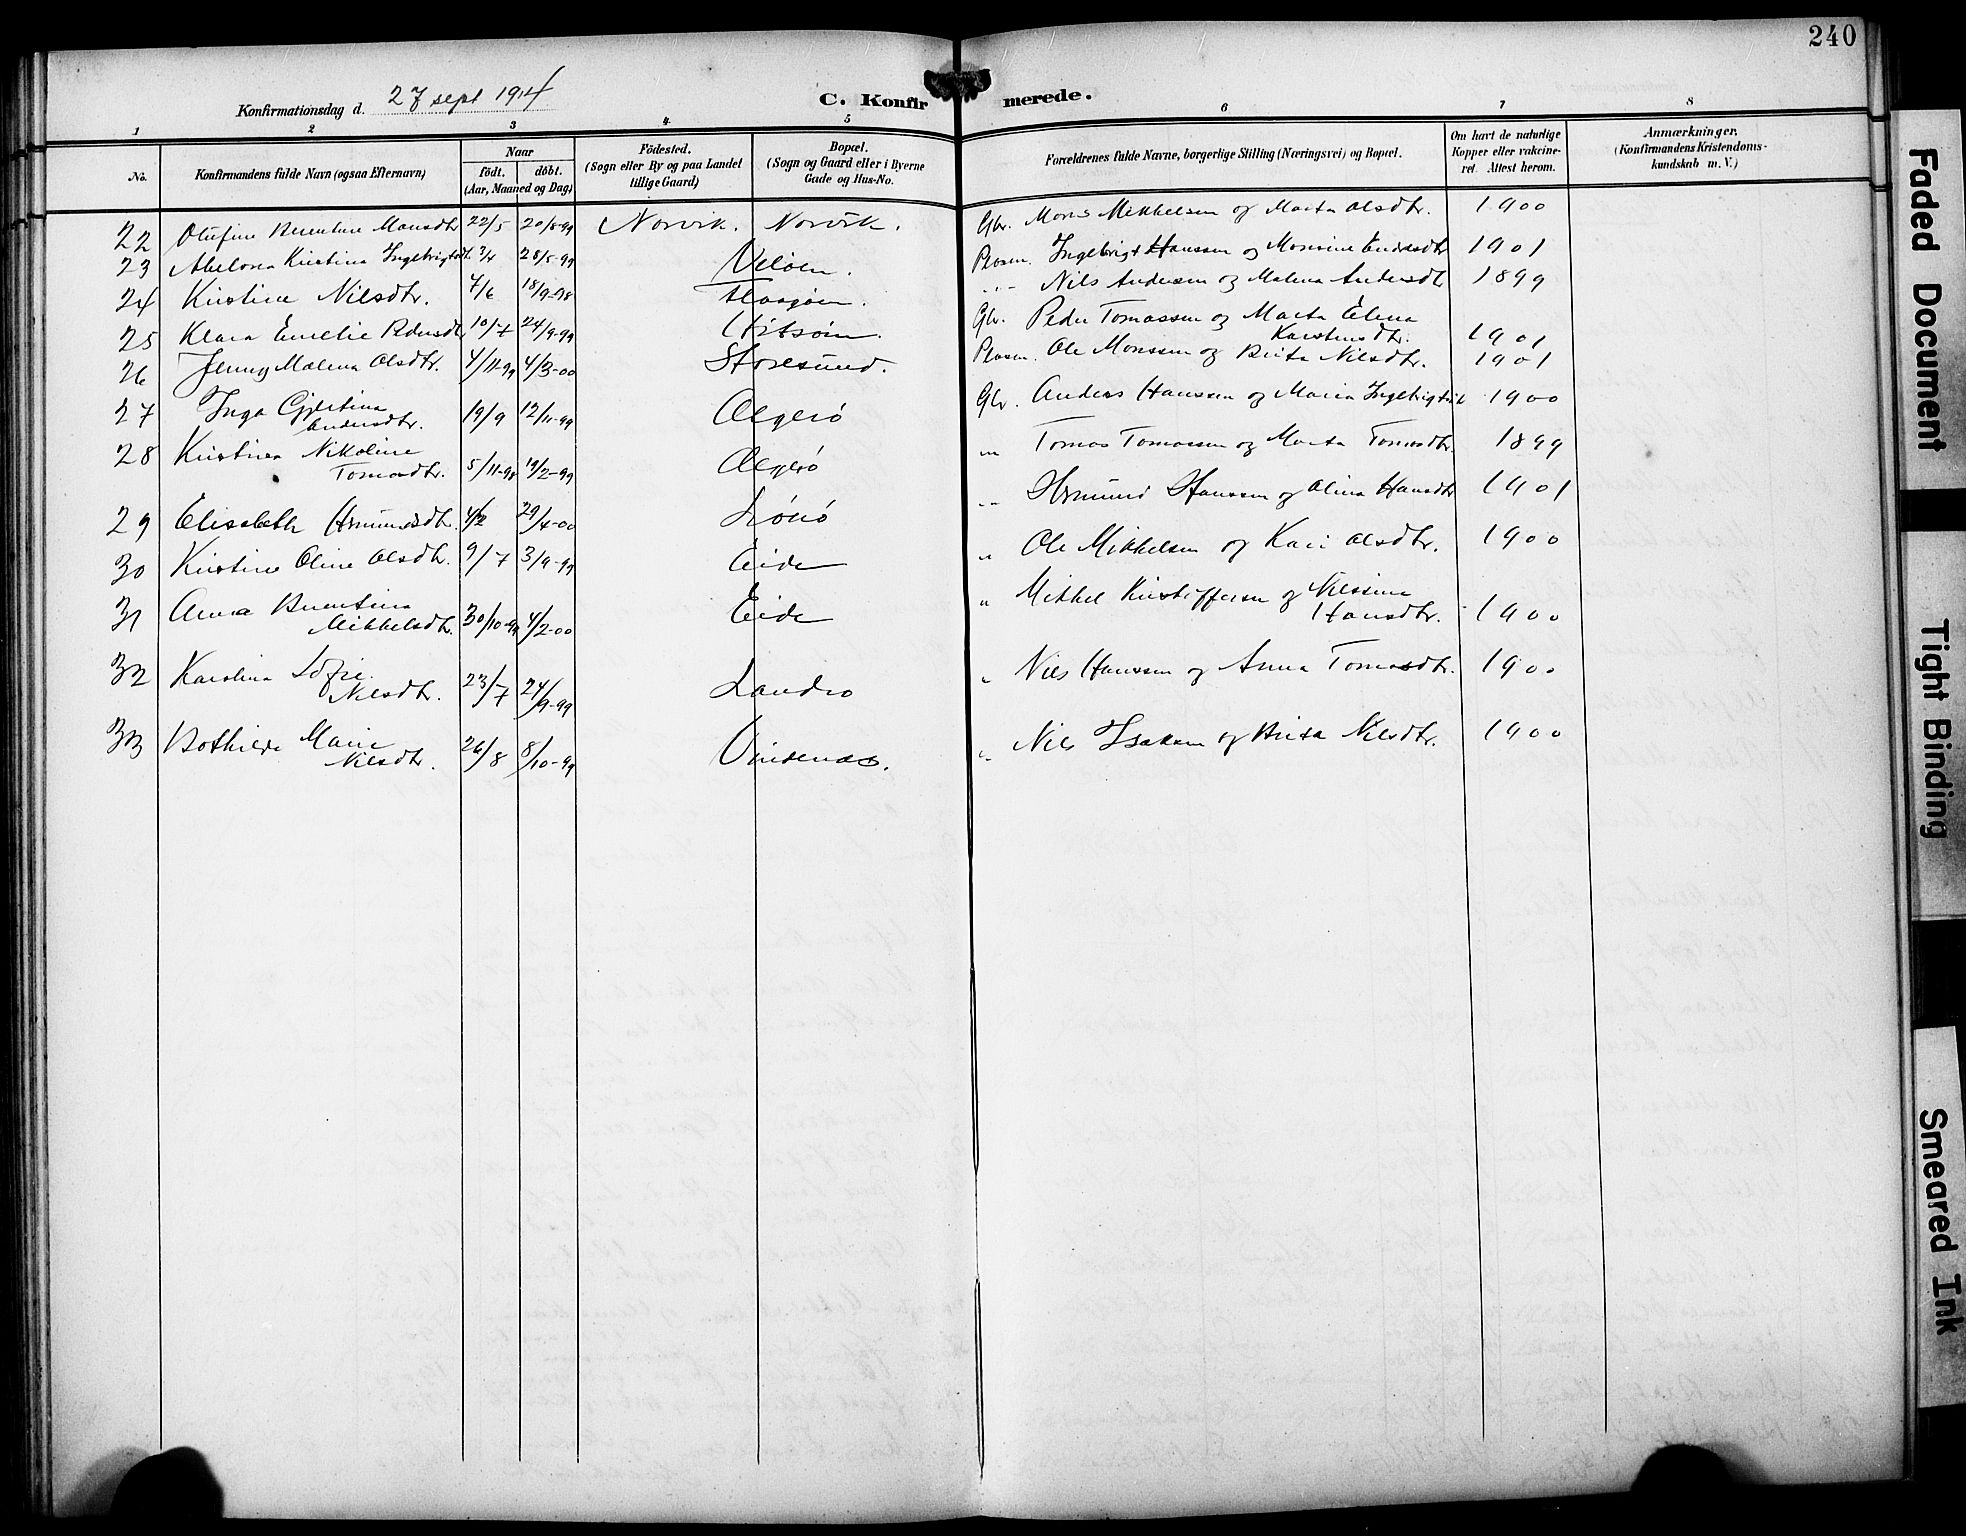 240
Konfirmationsdag d. 27 sept 1914
C. Konfirmerede.
1 2 3 4 5 6 7 8
No.
Konfirmandens fulde Navn (ogsaa Efternavn)
Naar
födt. döbt.
(Aar, Maaned og Dag)
Födested.
(Sogn eller By og paa Landet
tillige Gaard)
Bopæl.
(Sogn og Gaard eller i Byerne
Gade og Hus-No.
Forældrenes fulde Navne, borgerlige Stilling (Næringsvei) og Bopæl.
Om havt de naturlige
Kopper eller vakcine-
ret. Attest herom.
Anmærkninger.
(Konfirmandens Kristendoms-
kundskab m. V.)
22 Olufine Berentine Monsdtr 22/5 20/8-99 Norvik. Norvik. Gbr. Mons Mikkelsen og Marta Olsdtr. 1900
23 Abelona Kristina Ingebrigtsdt. 3/4 28/5-99 Veløen. Pladsm. Ingebrigt Hanssen og Monsine Endresdtr 1901
24 Kristine Nilsdtr. 7/6 18/9-98 Nils Andersen og Malena Andersdt 1899
25 Klara Emelie Pedersdtr 10/7 24/9-99 Gbr. Peder Tomassen og Marta Elena
Karstensdtr. 1901
26 Jenny Malena Olsdtr. 4/11-99 4/3-00 Storesund. Pladsm. Ole Monssen og Brita Nilsdtr. 1901
27 Inga Gjertina
Andersdtr. 19/9 12/11-99 Algerø Gbr. Anders Hanssen og Maria Ingebrigtsd 1900
28 Kristina Nikoline
Tomasdtr. 5/11-98 19/2-99 Algerø „ Tomas Tomassen og Marta Tomasdtr. 1899
29 Elisabeth Åmundsdtr. 4/2 29/4-00 Lønø „ Åmund Hanssen og Olina Hansdtr 1901
30 Kristine Oline Olsdtr. 9/7 3/9-99 Eide „ Ole Mikkelsen og Kari Olsdtr. 1900
31 Anna Berentina
Mikkelsdtr. 30/10-99 4/2-00 Eide „ Mikkel Kristoffersen og Nilssine
Hansdtr. 1900
32 Karolina Sofie
Nilsdtr. 23/7 24/9-99 Landro „ Nils Hanssen og Anna Tomasdtr. 1900
33 Bothilde Marie
Nilsdtr. 26/8 8/10-99 Vindenæs. „ Nils Isaksen og Brita Nilsdtr. 1900
Faded Document
Tight Binding
Smeared Ink